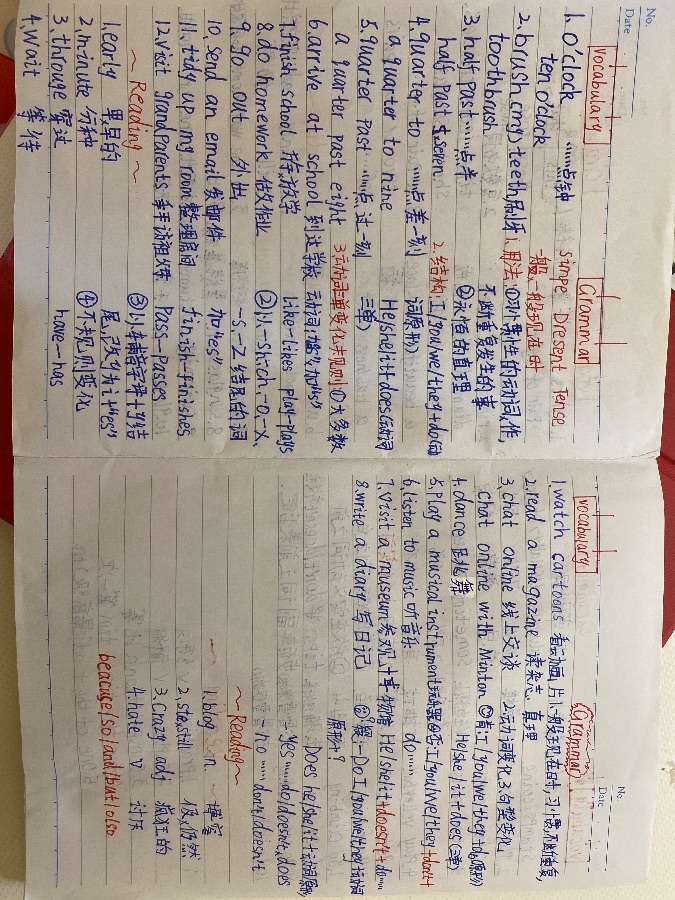 No.
Date
vocabulary
Grammar
1. o'clock ……点钟
ten o'clock
simpe Dresent Tense
一般一般现在时
2. brush (my) teeth 刷牙
toothbrush
1. 用法: ①外事性的动词,作,
不断重复发生的事
3. half past ……点半
half past seven
②永恒的真理
4. quarter to ……点差一刻
a quarter to nine
2. 结构: I/you/we/they+do(动
词原形)
5. quarter past ……点过一刻
a quarter past eight
He/she/it+does(动词
三单)
6. arrive at school 到达学校
3. 动词三单变化规则①大多数
动词加"s"
7. finish school 放学
like-likes play-plays
8. do homework 做作业
②以-sh-ch-o,-x,
9. go out 外出
-s,-z结尾的词
10. send an email 发邮件
加"es"
11. tidy up my room 整理房间
finish-finishes
12. visit grandparents 拜访祖父母
Pass-Passes
~ Reading ~
③以辅音字母+y结
1. early 早早的
尾,改y为i+"es"
2. minute 分钟
④不规则变化
3. througe 穿过
have-has
4. wait 等待
No.
Date
vocabulary
Grammar
1. watch cartoons 看动画片
1. 一般现在时,习惯,不断重复,
真理
2. read a magazine 读杂志
3. chat online 线上交谈
2. 动词变化 3. 句型变化
chat online with Minton
①肯: I/you/we/they+do(原形)
He/she/it+does(三单)
4. dance 跳舞
5. play a musical instrument 玩乐器
②否: I/you/we/they+don't+
do……
6. listen to music 听音乐
7. visit a museum 参观博物馆
He/she/it+doesn't+do……
8. write a diary 写日记
③疑-Do I/you/we/they+动词
原形+?
Does he/she/it+动词原形
yes……do/doesn't, does
= no …… don't/doesn't
~ Reading ~
1. blog n. 博客
2. ste,still 仍,仍然
3. Crazy adj 疯狂的
4. hate v 讨厌
beacuse/so/and/but/also